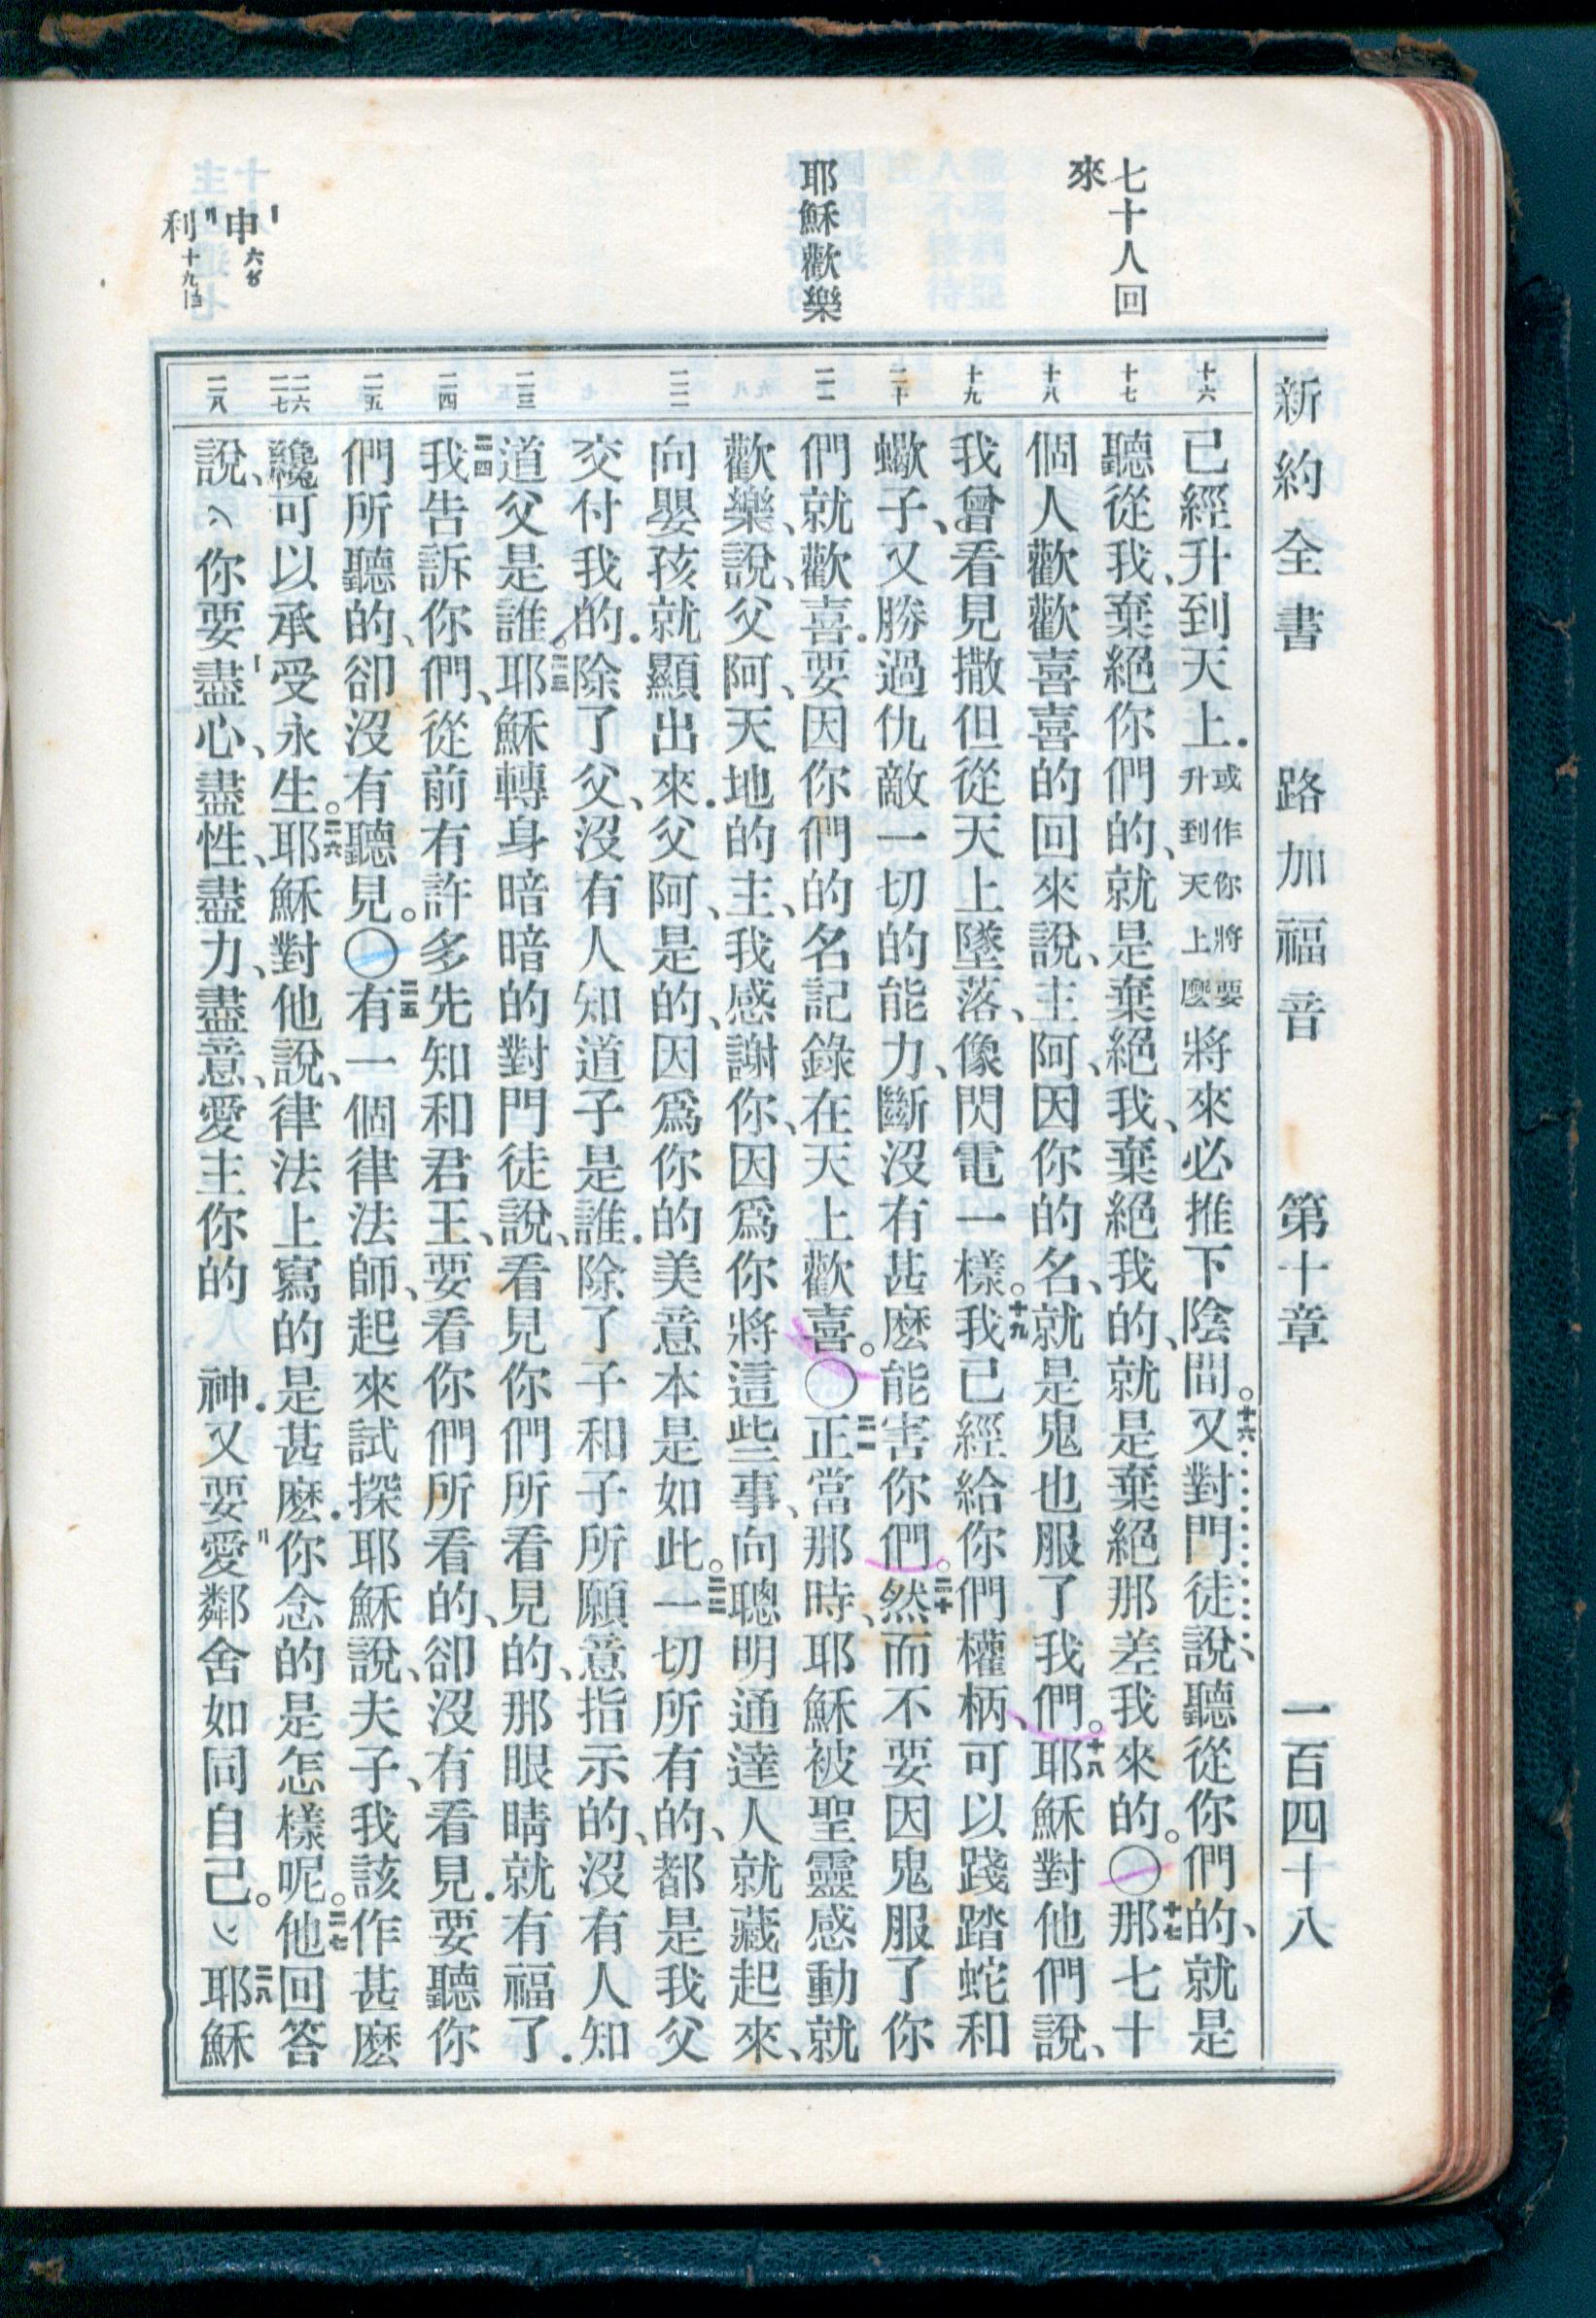 新約全書 路加福音 第十章 一百四十八
七十人回
來
耶穌歡樂
申六5
利十九18
十六
十七
十八
十九
二十
二一
二二
二三
二四
二五
二六
二七
二八
已經升到天上.或作你將要升到天上麼將來必推下陰間。十六又對門徒說、聽從你們的、就是
聽從我、棄絕你們的、就是棄絕我、棄絕我的、就是棄絕那差我來的。〇十七那七十
個人歡歡喜喜的回來說、主阿、因你的名、就是鬼也服了我們。十八耶穌對他們說、
我曾看見撒但從天上墜落、像閃電一樣。十九我已經給你們權柄、可以踐踏蛇和
蠍子、又勝過仇敵一切的能力、斷沒有甚麽能害你們。二十然而不要因鬼服了你
們就歡喜.要因你們的名記錄在天上歡喜。〇二一正當那時、耶穌被聖靈感動就
歡樂、說、父阿、天地的主、我感謝你、因爲你將這些事、向聰明通達人就藏起來、
向嬰孩就顯出來.父阿、是的、因爲你的美意本是如此。二二一切所有的、都是我父
交付我的.除了父、沒有人知道子是誰.除了子和子所願意指示的、沒有人知
道父是誰。二三耶穌轉身暗暗的對門徒說、看見你們所看見的、那眼睛就有福了.
二四我告訴你們、從前有許多先知和君王、要看你們所看的、卻沒有看見.要聽你
們所聽的、卻沒有聽見。〇二五有一個律法師、起來試探耶穌說、夫子、我該作甚麽
纔可以承受永生。二六耶穌對他說、律法上寫的是甚麽.你念的是怎樣呢。二七他回答
說、你要盡心、盡性、盡力、盡意、愛主你的 神.又要愛鄰舍如同自己。二八耶穌